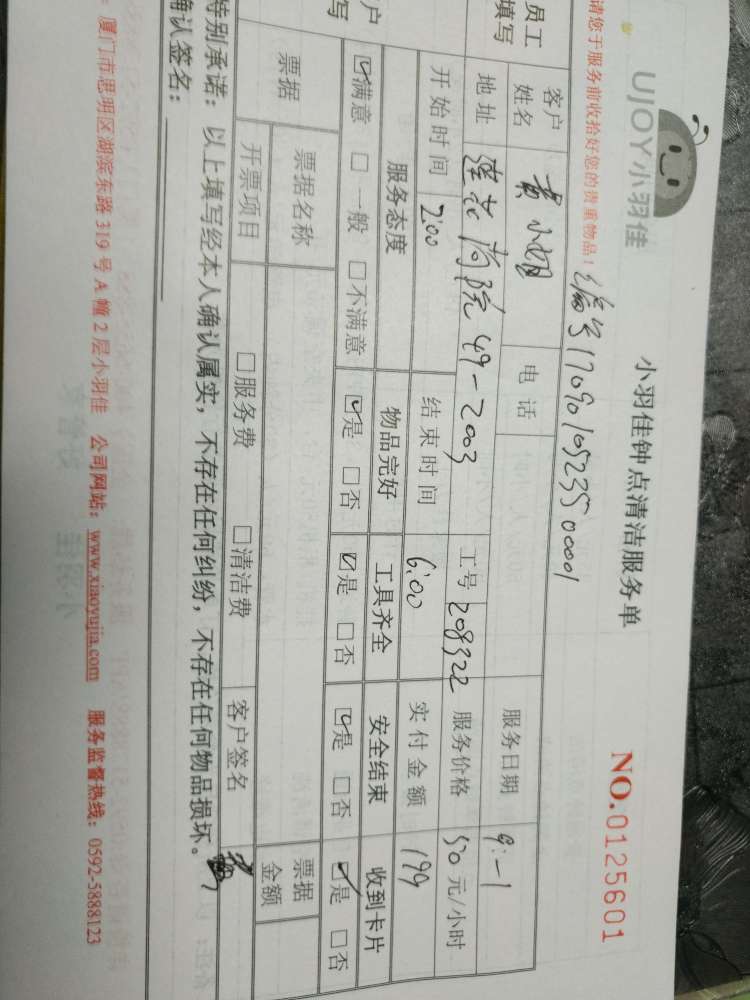 UJOY小羽佳
小羽佳钟点清洁服务单
NO.0125601
请您于服务前收拾好您的贵重物品!
编号170901052350001
员工填写
客户姓名 黄小姐 电话 服务日期 9.-1
地址 莲花尚院49-2003 工号 208322 服务价格 50元/小时
开始时间 2:00 结束时间 6:00 实付金额 199
户
写
服务态度 物品完好 工具齐全 安全结束 收到卡片
☑满意 □一般 □不满意 ☑是 □否 ☑是 □否 ☑是 □否 ☑是 □否
票据 票据名称 票据金额
开票项目 □服务费 □清洁费 客户签名
特别承诺:以上填写经本人确认属实,不存在任何纠纷,不存在任何物品损坏。
确认签名:
厦门市思明区湖滨东路319号A幢2层小羽佳 公司网站:www.xiaoyujia.com 服务监督热线:0592-5888123